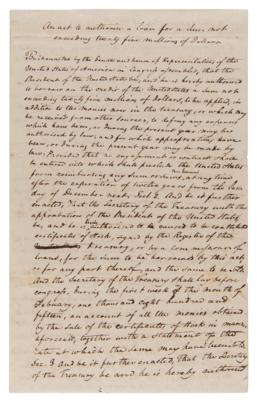 An act to authorise a loan for a sum not
exceeding twenty five millions of Dollars
Be it enacted by the Senate and House of Representatives of the
United States of America in Congress assembled, that the
President of the United States be, and he is hereby authorised
to borrow on the credit of the United States a sum not
exceeding twenty five millions of dollars, to be applied, in
addition to the monies now in the treasury, or which may
be received from other sources, to defray any expenses
which have been, or during the present year may be
authorised by law, and for which appropriations have
been, or during the present year may be made by
law: Provided that no engagement or contract shall
be entered into which shall preclude the United States
from reimbursing any sum or sums at any time
after the expiration of twelve years from the last
day of December next. Sec. 2. And be it further
enacted, That the Secretary of the Treasury with the
approbation of the President of the United States,
be, and he is hereby authorised to cause to be constituted
certificates of stock, signed by the Register of the
Treasury, or by a commissioner of
loans, for the sum to be borrowed by this act,
or for any part thereof, and the same to be sold.
And the Secretary of the Treasury shall lay before
congress, during the first week of the month of
February, one thousand and eight hundred and
fifteen, an account of all the monies obtained
by the sale of the certificates of stock in manner
aforesaid, together with a statement of the
rate at which the same may have been sold
Sec. 3 and be it further enacted, That the Secretary
of the Treasury be and he is hereby authorised